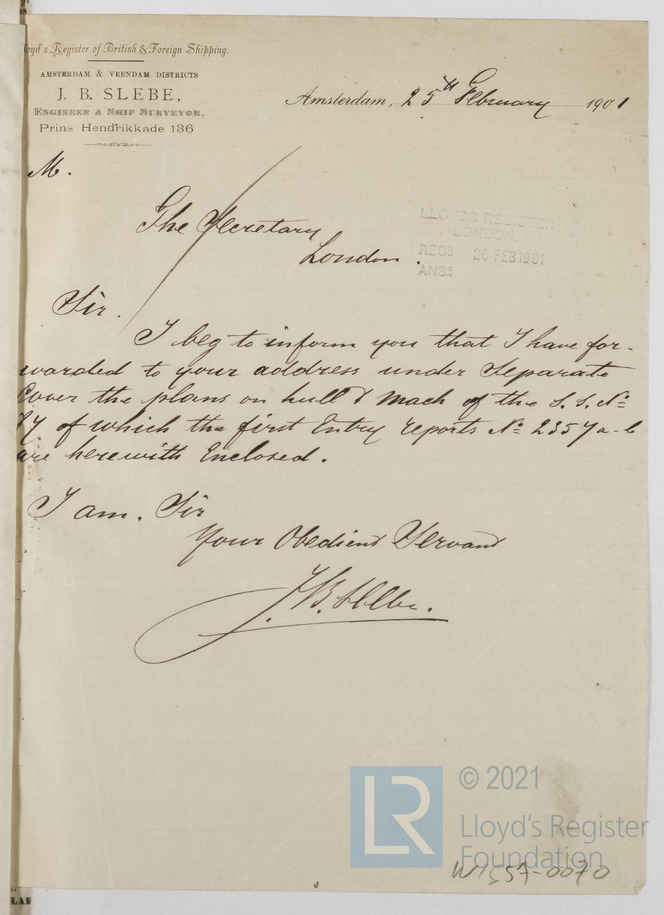 loyd's Register of British & Foreign Shipping.
AMSTERDAM & VEENDAM DISTRICTS
J. B. SLEBE,
ENGINEER & SHIP SURVEYOR,
Prins Hendrikkade 136
Amsterdam, 25th February 1901
M.
The Secretary
London.
LLOYD'S REGISTER
LONDON.
REC'D 26 FEB 1901
ANS'D
Sir.
I beg to inform you that I have for-
warded to your address under Separate
Cover the plans on hull & mach of the S.S. No
of which the first Entry reports No 2357 a-b
are herewith Enclosed.
I am. Sir
Your Obedient Servant
J.B. Slebe.
© 2021
LR
Lloyd's Register
Foundation
W1557-0070
LAI